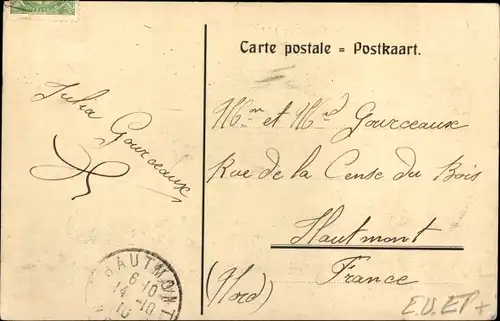 Carte postale = Postkaart.
Julia Gourceaux
Mon et Mad Gourceaux
Rue de la Cense du Bois
Hautmont
(Nord) France
HAUTMONT
6·10
14·10
10
E.U.EP+